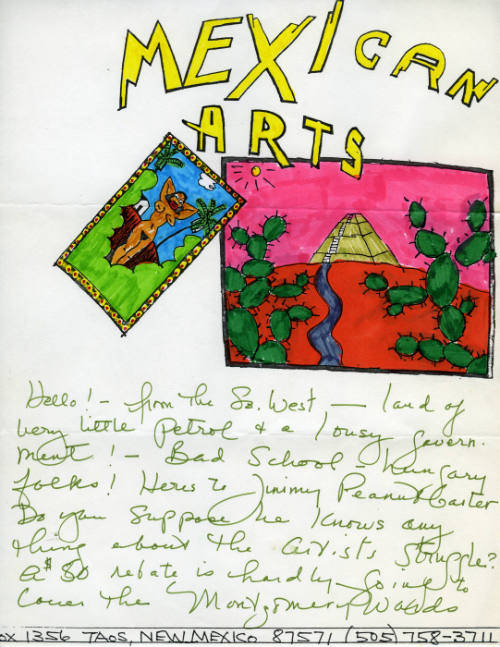 MEXICAN
ARTS
Hello! - from the So. West — land of
very little Petrol & a lousy govern.
ment! - Bad School - hungary
folks! Heres to Jimmy Peanut Carter
Do you suppose he knows any
thing about the artists struggle?
a $50 rebate is hardly going to
cover the Montgomery Wards
ox 1356 TAOS, NEW MEXICO 87571 (505) 758-3711